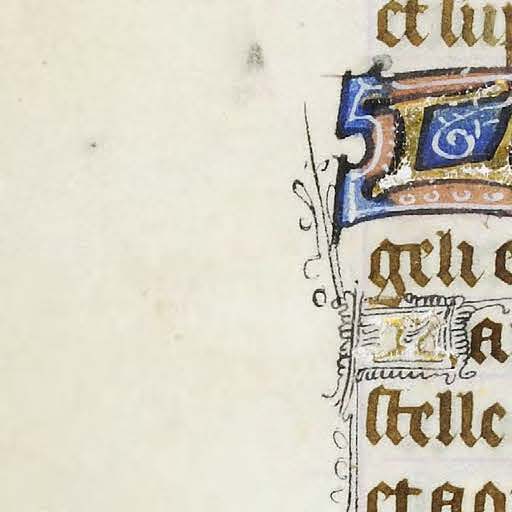 et lup
geli e
stelle
et aq